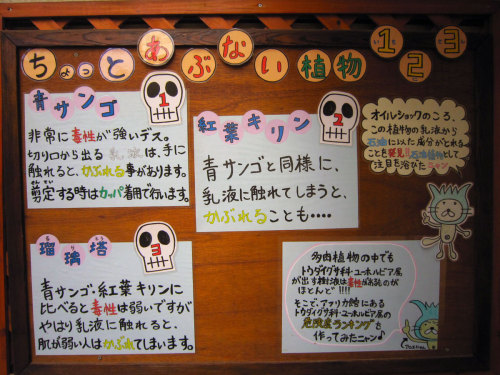 ちょっとあぶない植物 1・2・3
青サンゴ
1
非常に毒性が強いデス。
切り口から出る 乳液 は、手に
触れると、かぶれる事があります。
剪定する時はカッパ着用で行います。
紅葉キリン
2
青サンゴと同様に、
乳液に触れてしまうと、
かぶれることも・・・・
オイルショックのころ、
この植物の乳液から
石油に似た成分がとれる
ことを発見!!石油植物として
注目を浴びた
瑠璃塔
3
青サンゴ・紅葉キリンに
比べると毒性は弱いですが
やはり乳液に触れると、
肌が弱い人はかぶれてしまいます。
多肉植物の中でも
トウダイグサ科・ユーホルビア属
が出す樹液は毒性があるものが
ほとんど!!!!
そこで、アフリカ館にある
トウダイグサ科・ユーホルビア属の
危険度ランキングを
作ってみたニャン♪